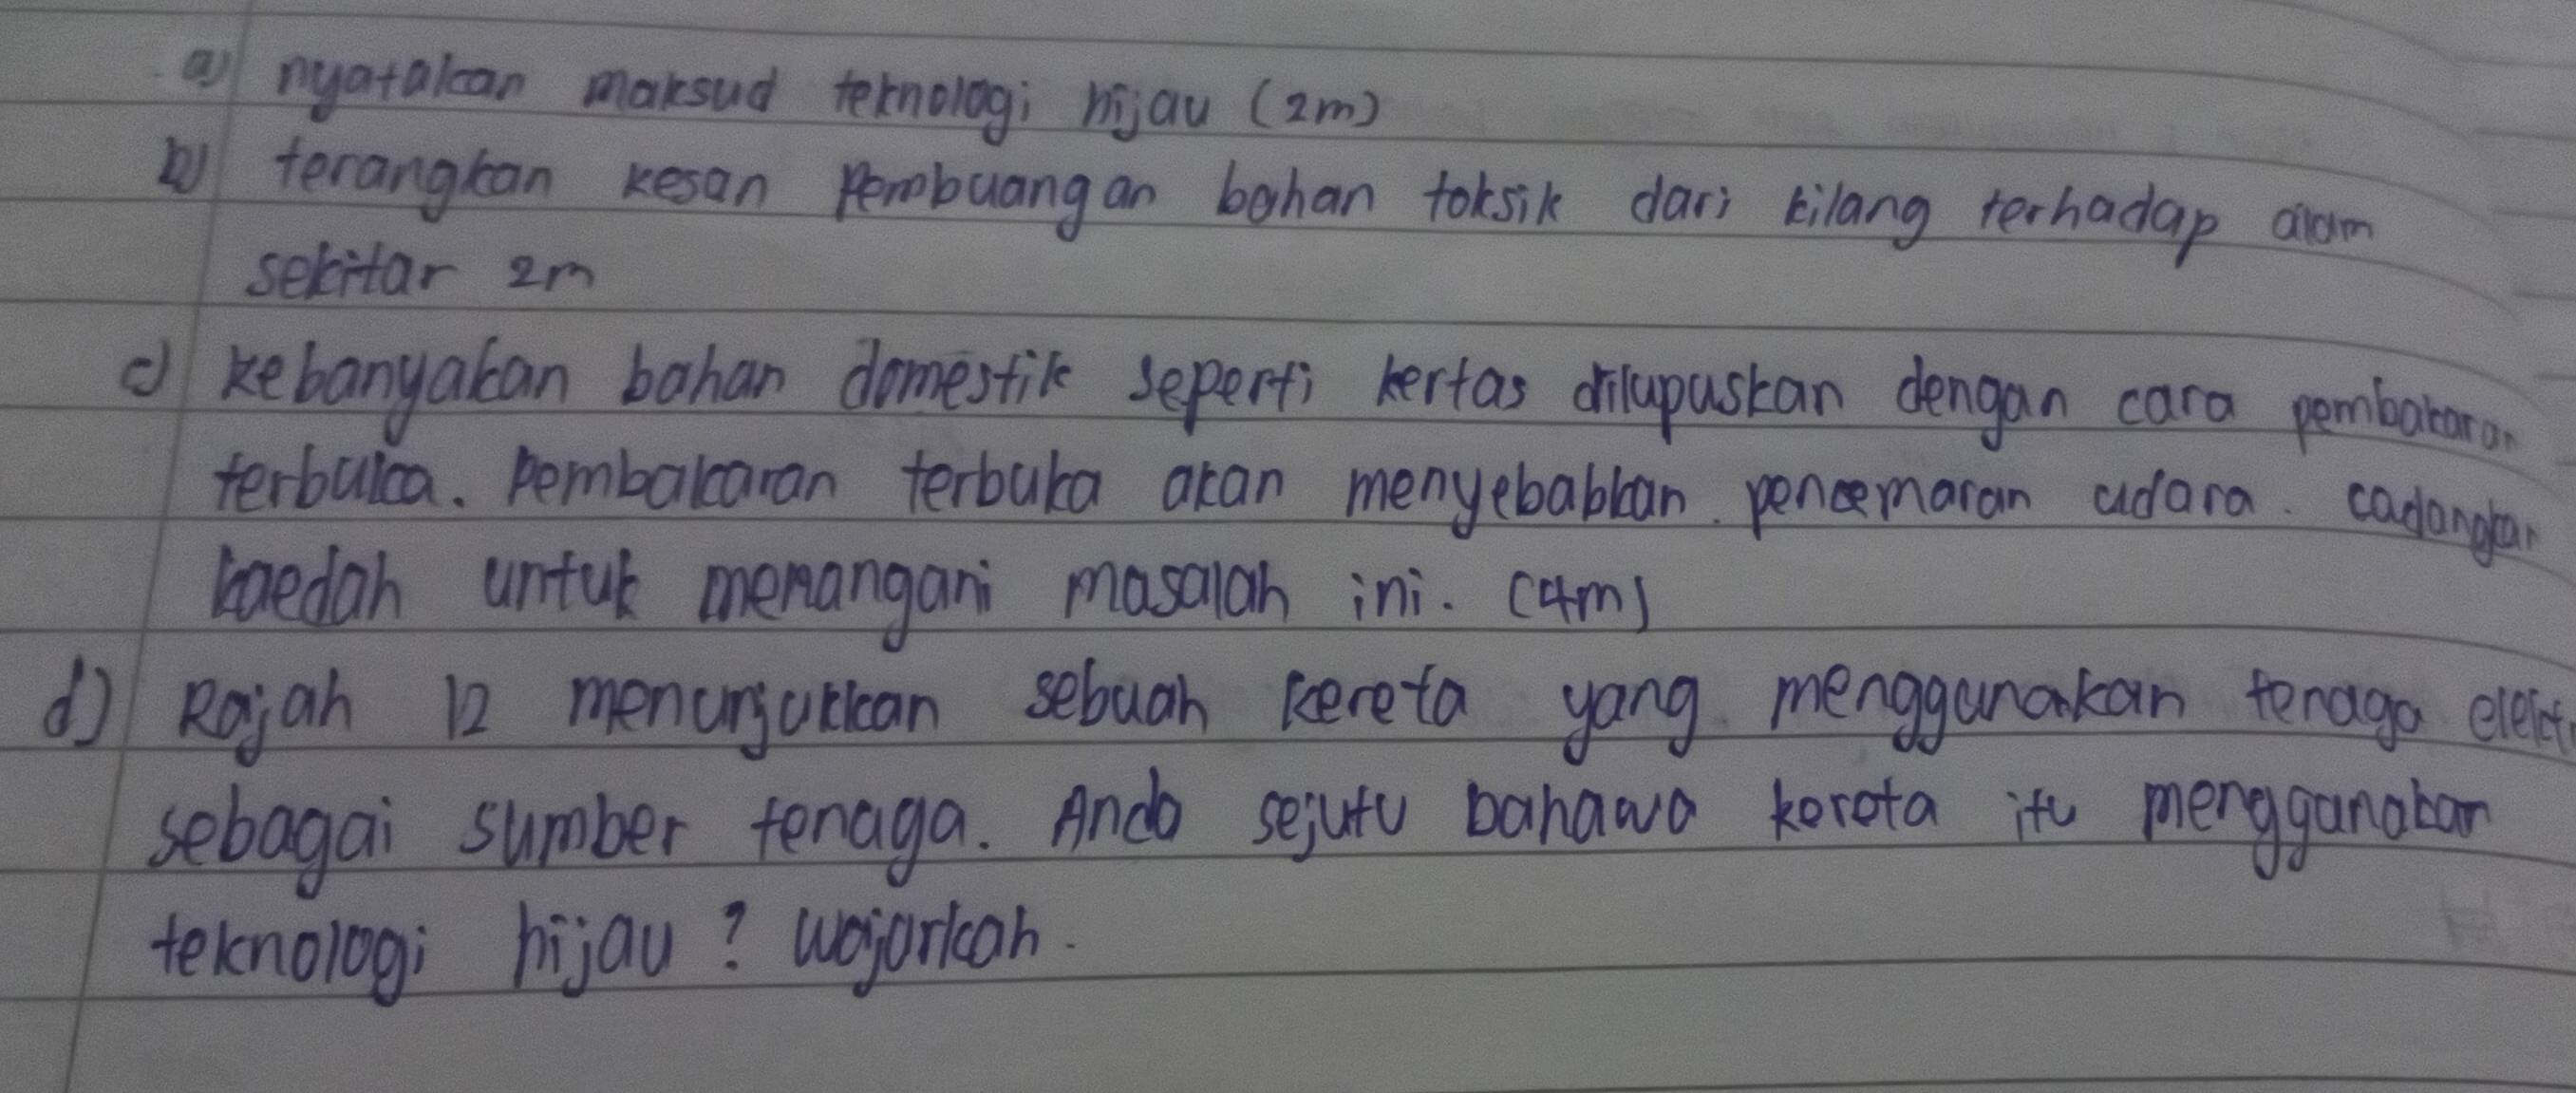 a) nyatakan maksud teknologi hijau (2m)
b) terangkan kesan pembuangan bahan toksik dari kilang terhadap alam
sekitar 2m
c) kebanyakan bahan domestik seperti kertas dilupuskan dengan cara pembakaran
terbuka. Pembakaran terbuka akan menyebabkan pencemaran udara. cadangkan
kaedah untuk menangani masalah ini. (4m)
d) Rajah 12 menunjukkan sebuah kereta yang menggunakan tenaga elekt
sebagai sumber tenaga. Anda sejutu bahawa kereta itu menggunakan
teknologi hijau? wajarkah.